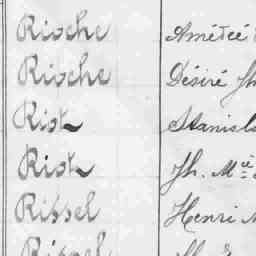 Rioche Amédée
Rioche Désiré Jh
Riot Stanisl
Riot Jh. Mie
Rissel Henri